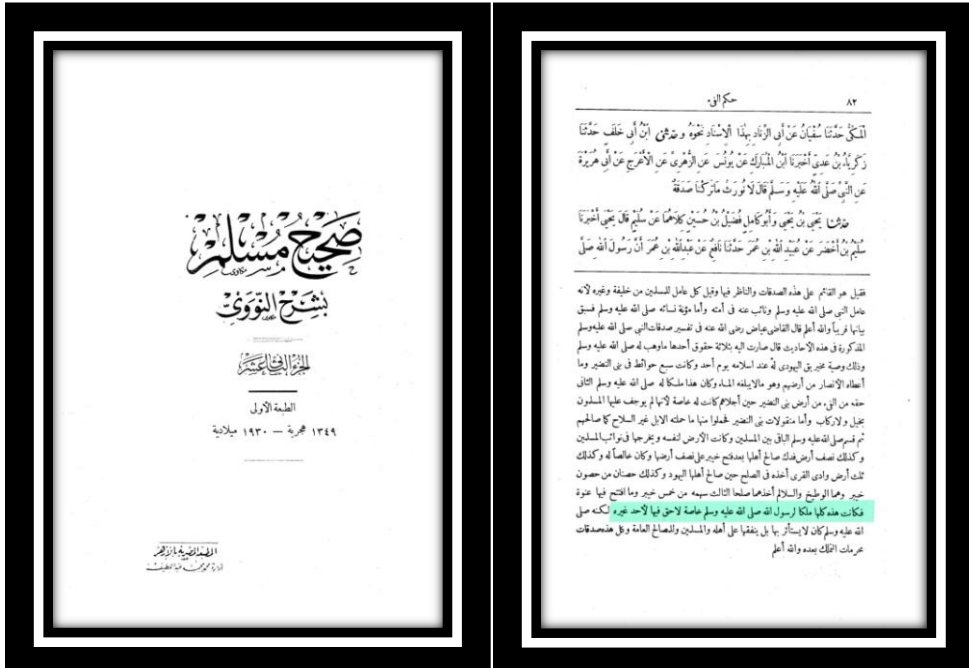 صحيح مسلم
بشرح النووي
الجزء الثاني عشر
الطبعة الأولى
١٣٤٩ هجرية — ١٩٣٠ ميلادية
المطبعة المصرية بالأزهر
إدارة محمد محمد عبد اللطيف
٨٢
حكم الفيء
الْمَكِّىُّ حَدَّثَنَا سُفْيَانُ عَنْ أَبِى الزِّنَادِ بِهٰذَا الْاِسْنَادِ نَحْوَهُ و حدثنى ابْنُ أَبِى خَلَفٍ حَدَّثَنَا
زَكَرِيَّاءُ بْنُ عَدِىٍّ أَخْبَرَنَا ابْنُ الْمُبَارَكِ عَنْ يُونُسَ عَنِ الزُّهْرِىِّ عَنِ الْأَعْرَجِ عَنْ أَبِى هُرَيْرَةَ
عَنِ النَّبِىِّ صَلَّى اللهُ عَلَيْهِ وَسَلَّمَ قَالَ لَا نُورَثُ مَا تَرَكْنَا صَدَقَةٌ
حدثنا يَحْيَى بْنُ يَحْيَى وَأَبُو كَامِلٍ فُضَيْلُ بْنُ حُسَيْنٍ كِلَاهُمَا عَنْ سُلَيْمٍ قَالَ يَحْيَى أَخْبَرَنَا
سُلَيْمُ بْنُ أَخْضَرَ عَنْ عُبَيْدِ اللهِ بْنِ عُمَرَ حَدَّثَنَا نَافِعٌ عَنْ عَبْدِ اللهِ بْنِ عُمَرَ أَنَّ رَسُولَ اللهِ صَلَّى
فقيل هو القائم على هذه الصدقات والناظر فيها وقيل كل عامل للمسلمين من خليفة وغيره لأنه
عامل النبى صلى الله عليه وسلم ونائب عنه فى أمته وأما مؤنة نسائه صلى الله عليه وسلم فسبق
بيانها قريباً والله أعلم قال القاضى عياض رضى الله عنه فى تفسير صدقات النبى صلى الله عليه وسلم
المذكورة فى هذه الأحاديث قال صارت اليه بثلاثة حقوق أحدها ماوهب له صلى الله عليه وسلم
وذلك وصية مخيريق اليهودى له عند اسلامه يوم أحد وكانت سبع حوائط فى بنى النضير وما
أعطاه الأنصار من أرضهم وهو مالايبلغه الماء وكان هذا ملكا له صلى الله عليه وسلم الثانى
حقه من الفىء من أرض بنى النضير حين أجلاهم كانت له خاصة لأنها لم يوجف عليها المسلمون
بخيل ولاركاب وأما منقولات بنى النضير فحملوا منها ما حملته الابل غير السلاح كما صالحهم
ثم قسم صلى الله عليه وسلم الباقى بين المسلمين وكانت الأرض لنفسه ويخرجها فى نوائب المسلمين
وكذلك نصف أرض فدك صالح أهلها بعد فتح خيبر على نصف أرضها وكان خالصاً له وكذلك
ثلث أرض وادى القرى أخذه فى الصلح حين صالح أهلها اليهود وكذلك حصنان من حصون
خيبر وهما الوطيخ والسلالم أخذهما صلحا الثالث سهمه من خمس خيبر وما افتتح فيها عنوة
فكانت هذه كلها ملكا لرسول الله صلى الله عليه وسلم خاصة لاحق فيها لأحد غيره لكنه صلى
الله عليه وسلم كان لايستأثر بها بل ينفقها على أهله والمسلمين وللمصالح العامة وكل هذه صدقات
محرمات التملك بعده والله أعلم